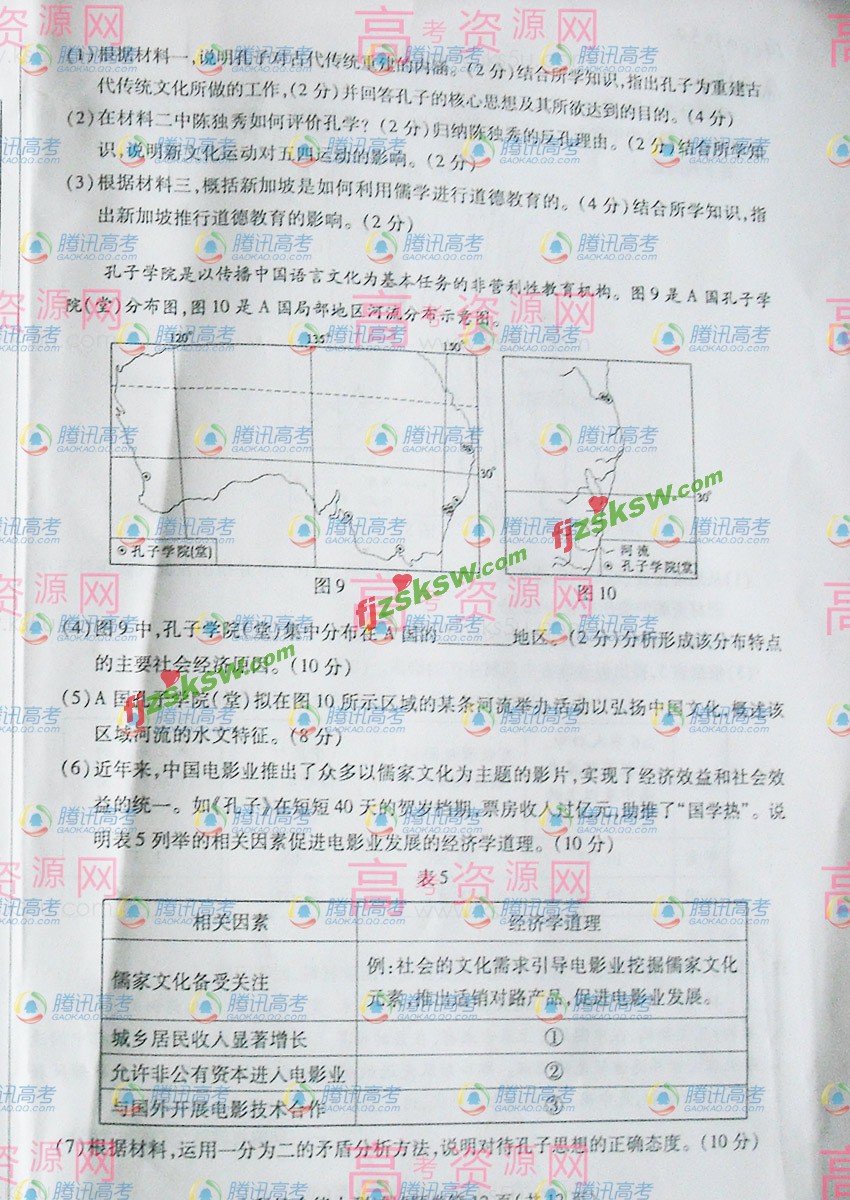 (1)根据材料一,说明孔子对古代传统重建的内涵。(2分)结合所学知识,指出孔子为重建古
代传统文化所做的工作,(2分)并回答孔子的核心思想及其所欲达到的目的。(4分)
(2)在材料二中陈独秀如何评价孔学?(2分)归纳陈独秀的反孔理由。(2分)结合所学知
识,说明新文化运动对五四运动的影响。(2分)
(3)根据材料三,概括新加坡是如何利用儒学进行道德教育的。(4分)结合所学知识,指
出新加坡推行道德教育的影响。(2分)
孔子学院是以传播中国语言文化为基本任务的非营利性教育机构。图9是A国孔子学
院(堂)分布图,图10是A国局部地区河流分布示意图。
120° 135° 150°
30° 30°
孔子学院(堂)
河流
孔子学院(堂)
图9 图10
(4)图9中,孔子学院(堂)集中分布在A国的______地区。(2分)分析形成该分布特点
的主要社会经济原因。(10分)
(5)A国孔子学院(堂)拟在图10所示区域的某条河流举办活动以弘扬中国文化,概述该
区域河流的水文特征。(8分)
(6)近年来,中国电影业推出了众多以儒家文化为主题的影片,实现了经济效益和社会效
益的统一。如《孔子》在短短40天的贺岁档期,票房收入过亿元,助推了“国学热”。说
明表5列举的相关因素促进电影业发展的经济学道理。(10分)
表5
相关因素 经济学道理
儒家文化备受关注 例:社会的文化需求引导电影业挖掘儒家文化
元素,推出适销对路产品,促进电影业发展。
城乡居民收入显著增长 ①
允许非公有资本进入电影业 ②
与国外开展电影技术合作 ③
(7)根据材料,运用一分为二的矛盾分析方法,说明对待孔子思想的正确态度。(10分)
高考资源网
腾讯高考
GAOKAO.QQ.COM
fjzsksw.com
fjzsksw.com
fjzsksw.com